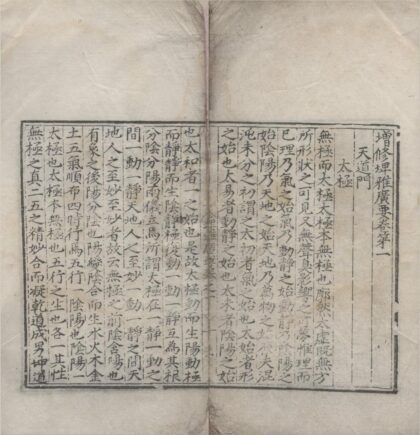 增修埤雅廣要卷第一
天道門
太極
無極而太極太極本無極也廓然太虛既無方
所形狀之可見又無聲臭影響之可尋惟理而
已理乃氣之始氣乃動靜之始動靜乃陰陽之
始陰陽乃天地之始天地乃萬物之始夫混
沌未分之初謂之太初者氣之始也太始者形
之始也太易者動靜之始也太素者陰陽之始
也太和者一之始也是故太極動而生陽動極
而靜靜而生陰靜極復動一動一靜互為其根
分陰分陽兩儀立焉所謂太極在一動一靜之
間一動一靜天地人之至妙一動一靜之間天
地人之至妙至妙者故云無極之前陰含陽也
有象之後陽分陰也陽變陰合而生水火木金
土五氣順布四時行焉五行一陰陽也陰陽一
太極也太極本無極也五行之生也各一其性
無極之真二五之精妙合而凝乾道成男坤道